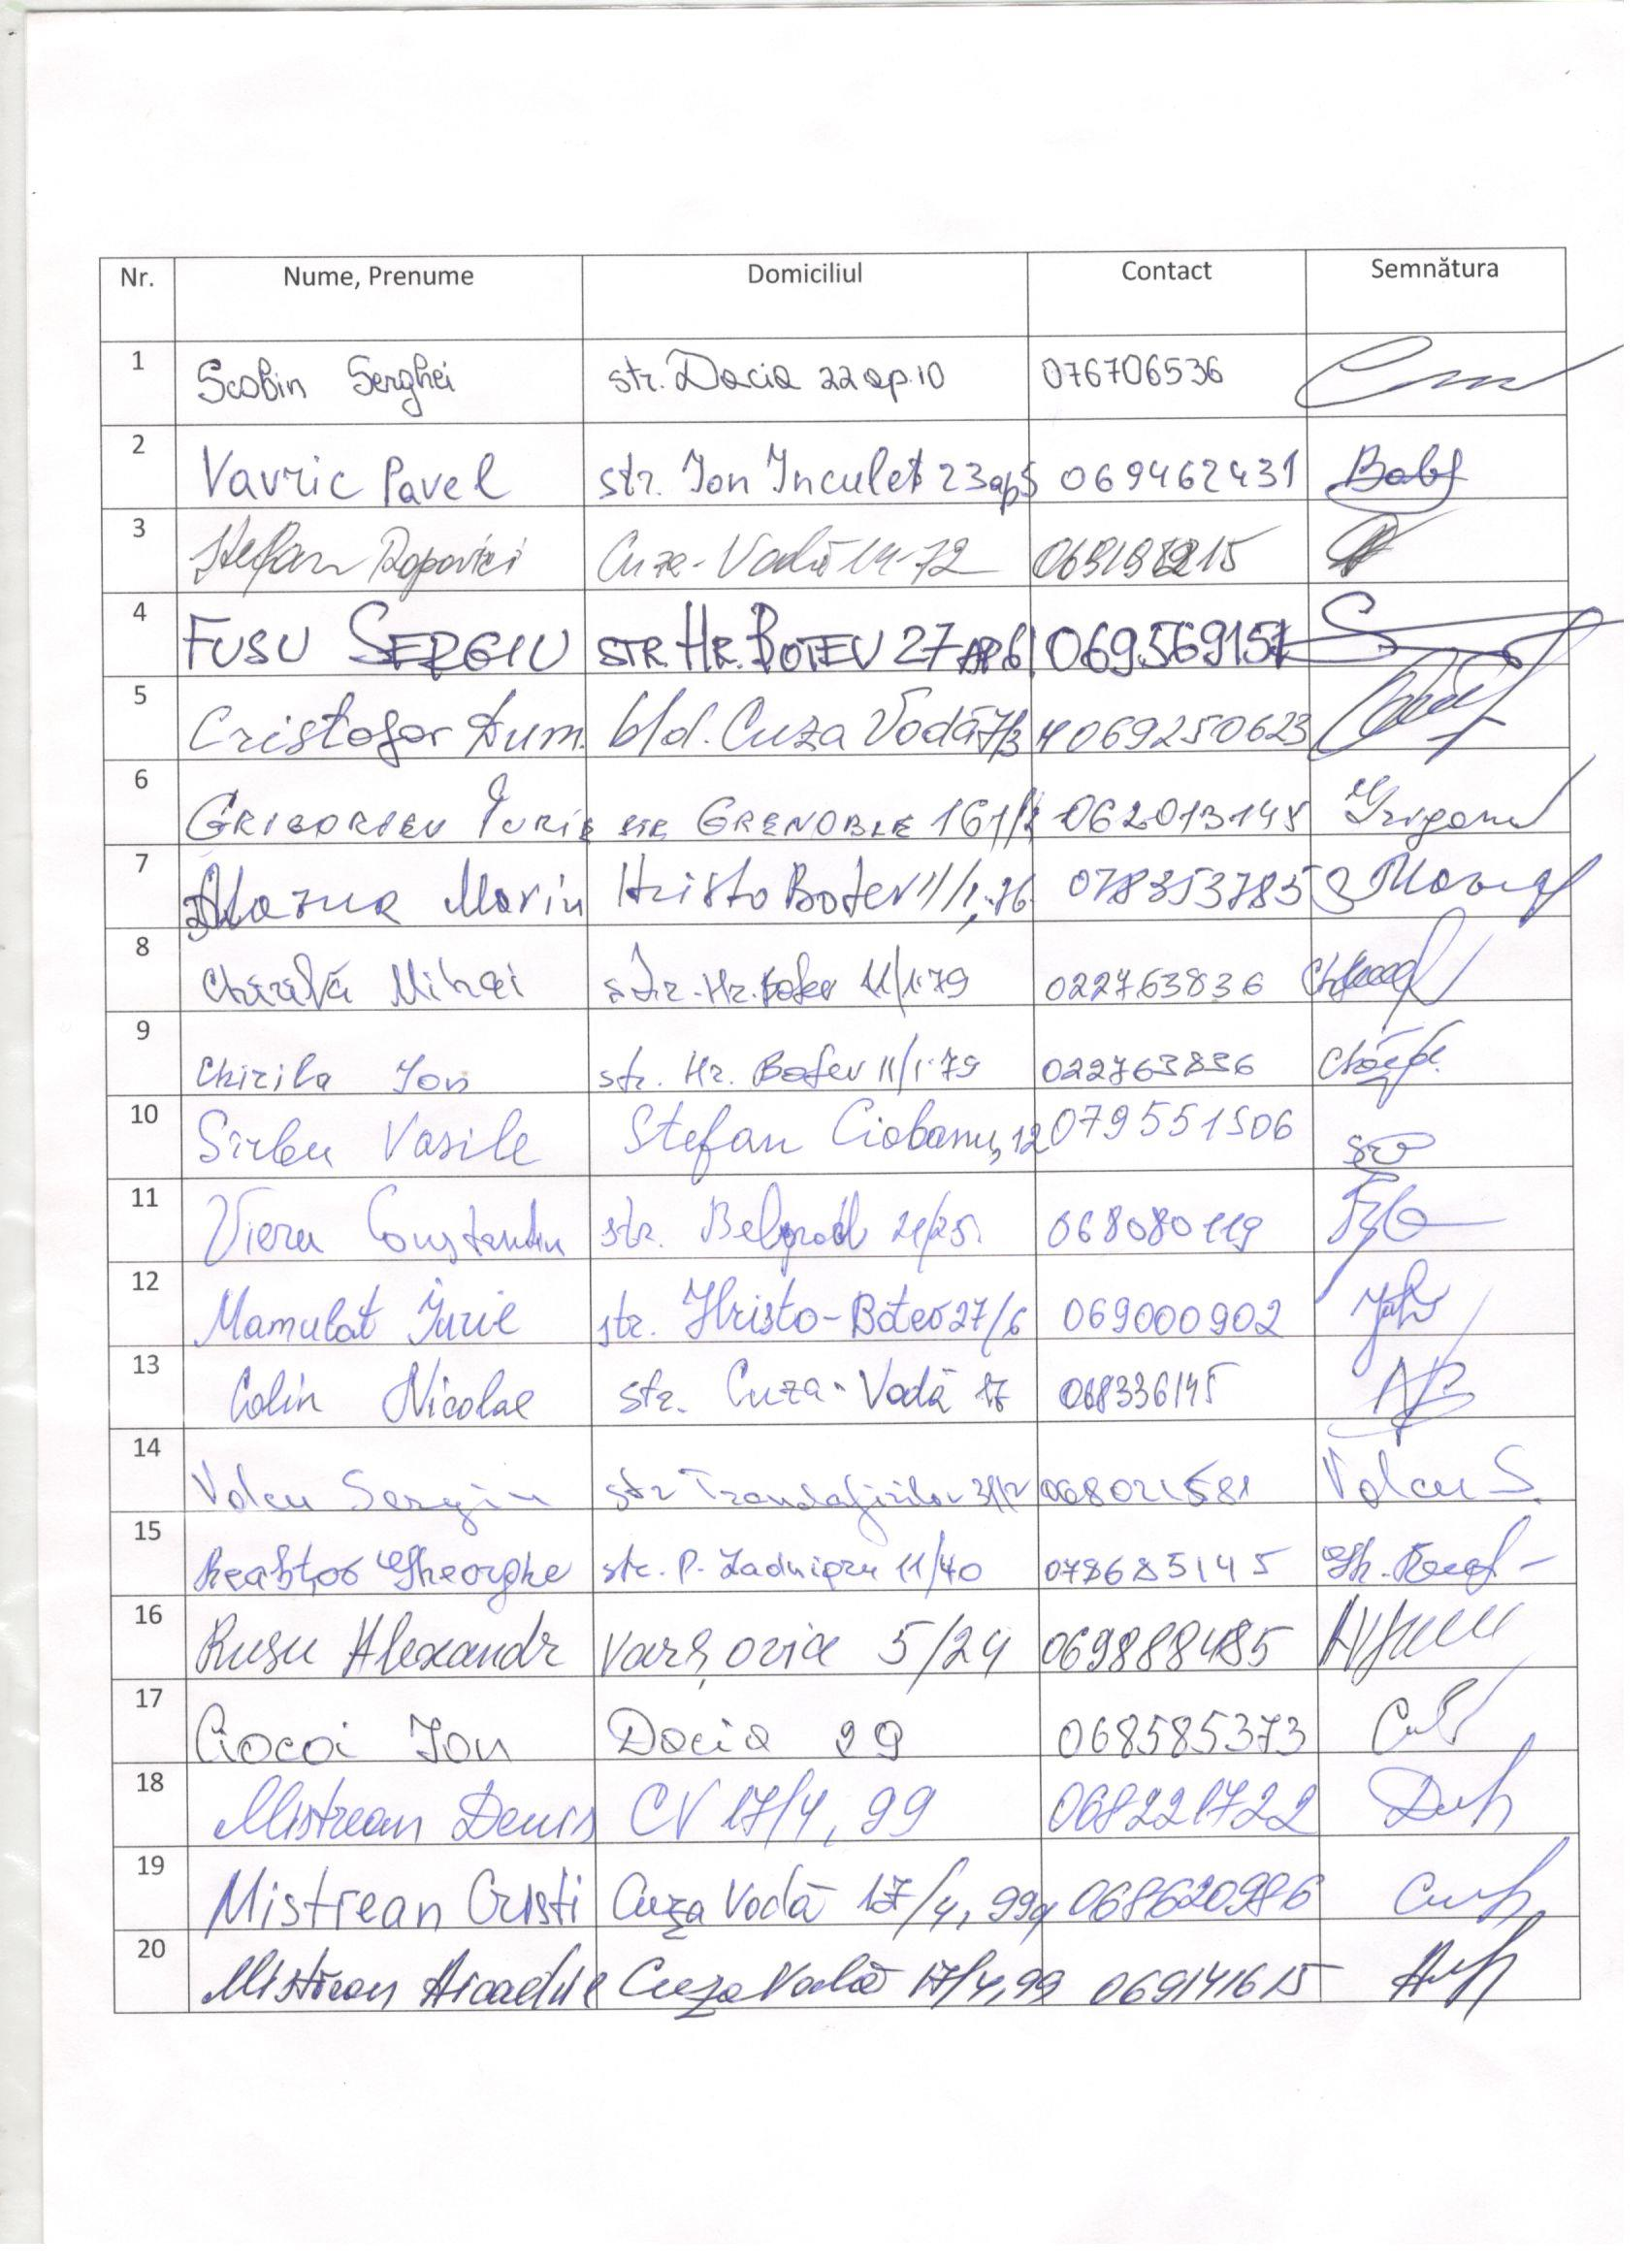 Nr. Nume, Prenume Domiciliul Contact Semnătura
1 Scobin Serghei str. Dacia 22 ap.10 076706536
2 Vavric Pavel str. Ion Inculet 23 ap5 069462431
3 Stefan Popovici Cuza-Vodă 14-72
4 FUSU SERGIU STR. HR. BOTEV 27 AP.6 069569151
5 Cristofor Dum. b/d. Cuza Vodă 7/3 069250623
6 GRIGORIEV IURIE STR GRENOBLE 161/2 062013145
7 Marin Hristo Botev 11/1, 76 078353785
8 Chirilă Mihai str. Hr. Botev 11/1.79 022763836
9 Chirila Ion str. Hr. Botev 11/1.79 022763836
10 Sirbu Vasile Stefan Ciobanu, 12 079551506
11 Vieru Constantin str. Belgrad 21/25. 068080119
12 Mamulat Iurie str. Hristo-Botev 27/6 069000902
13 Colin Nicolae str. Cuza-Vodă 17 068336145
14 Volcu Sergiu str Trandafirilor 31/2 Volcu S.
15 Gheorghe str. P. Zadnipru 11/40 078685145
16 Rusu Alexandr Varșovia 5/24 069888485
17 Ciocoi Ion Dacia 29 068585373
18 Mistrean Denis CV 17/4, 99 068221722
19 Mistrean Cristi Cuza Vodă 17/4, 99 068620986
20 Mistrean Arcadie Cuza Vodă 17/4, 99 069141615